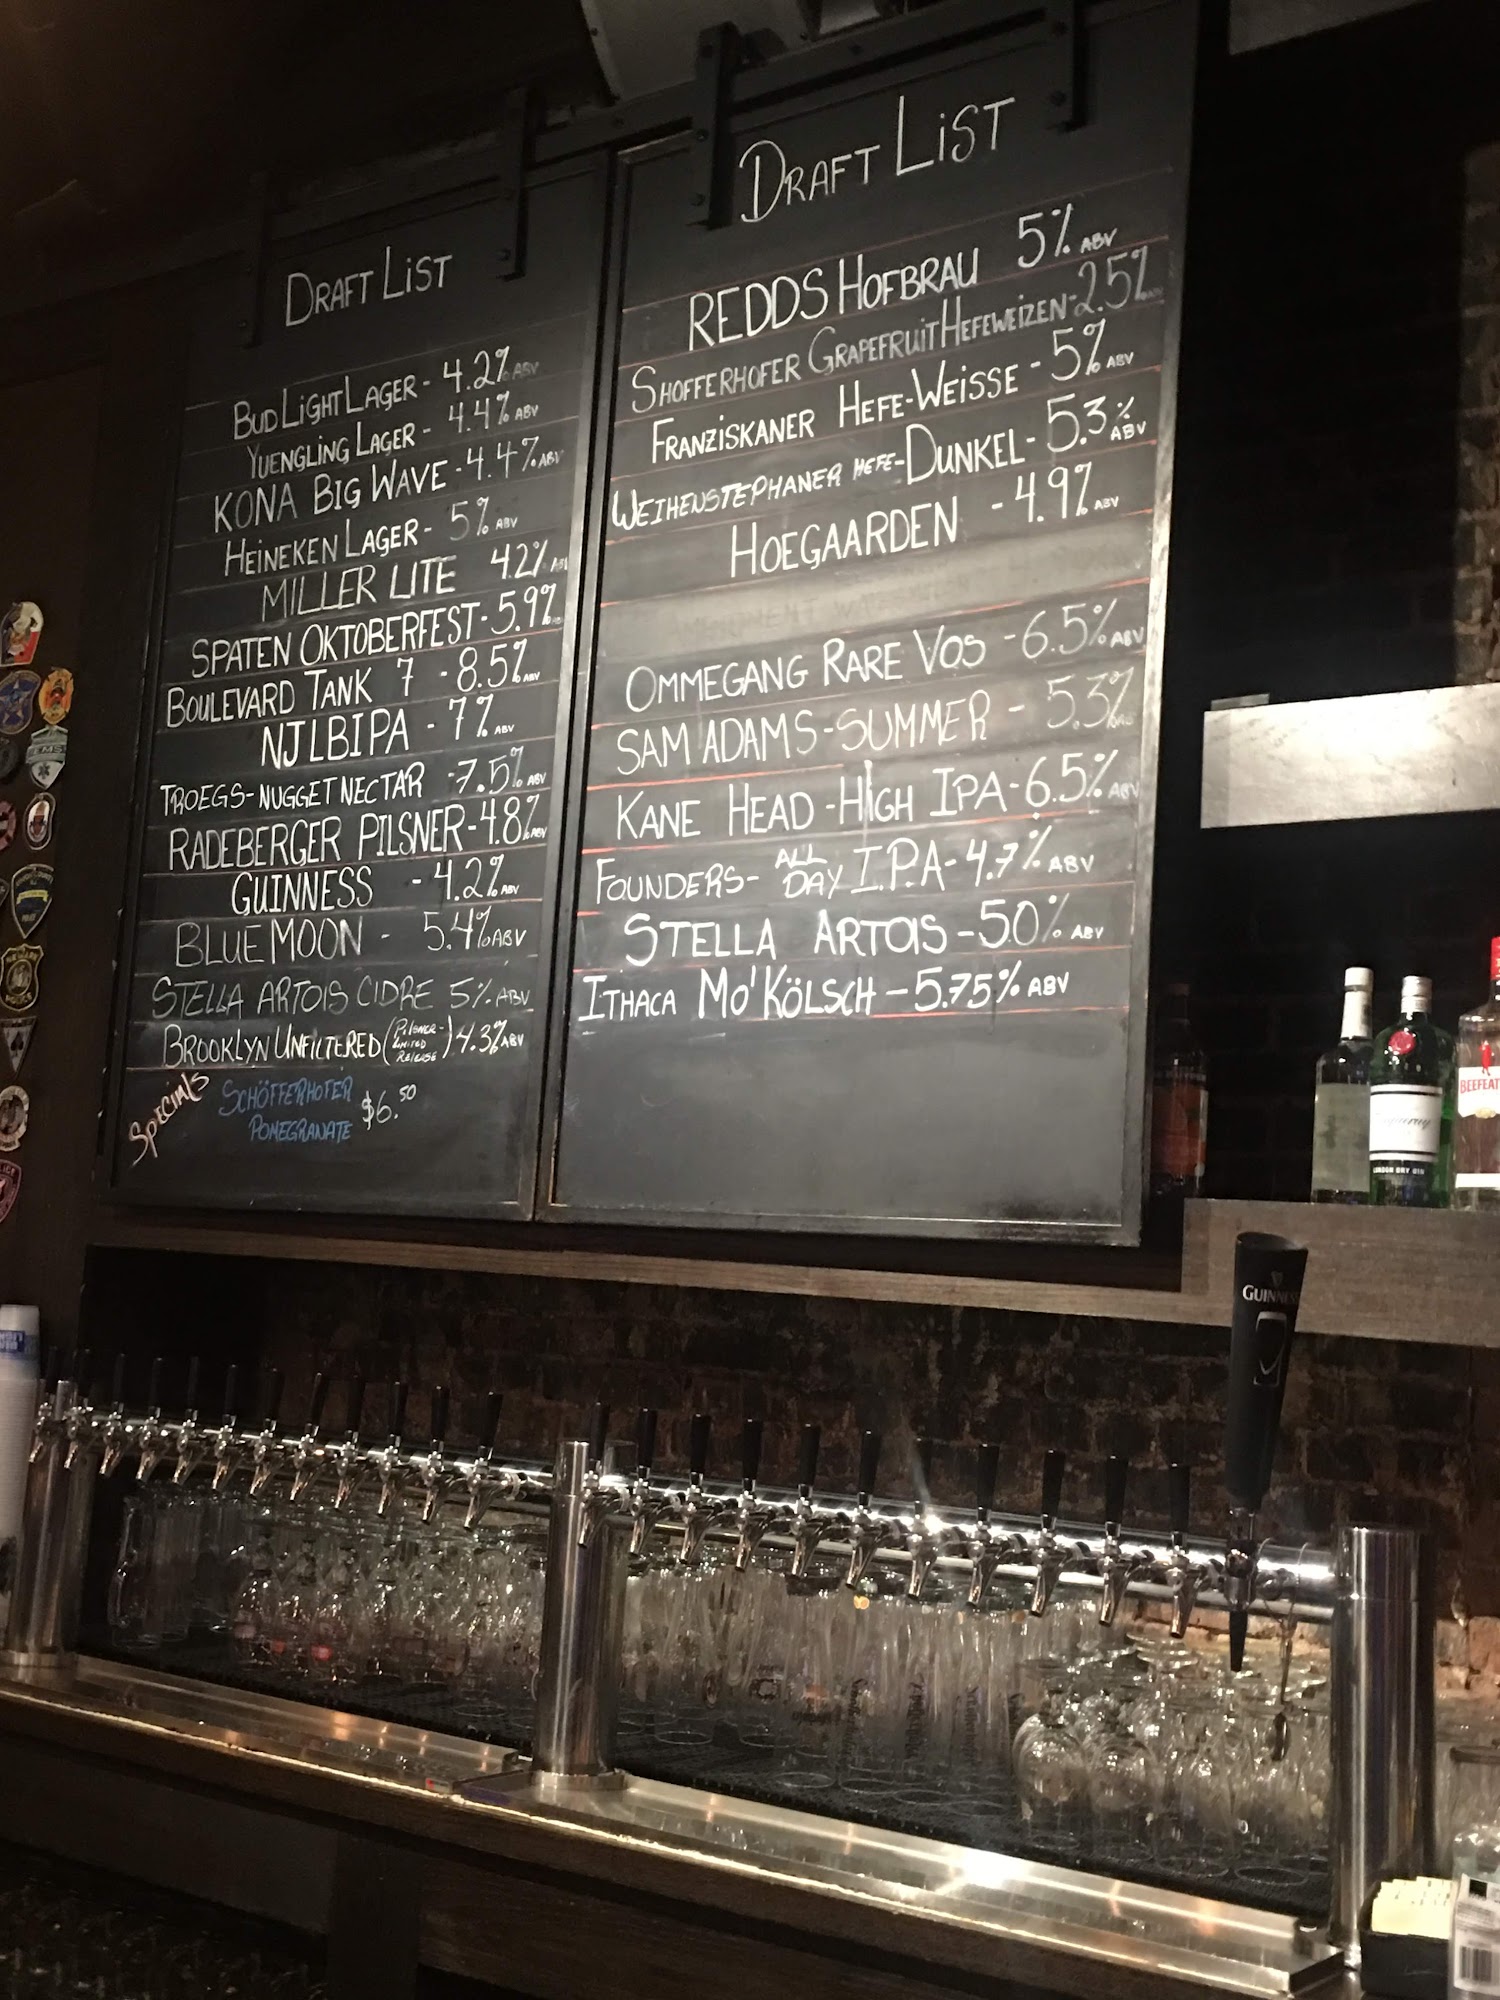 DRAFT LIST
BUD LIGHT LAGER - 4.2% ABV
YUENGLING LAGER - 4.4% ABV
KONA BIG WAVE - 4.4% ABV
HEINEKEN LAGER - 5% ABV
MILLER LITE 4.2% ABV
SPATEN OKTOBERFEST - 5.9%
BOULEVARD TANK 7 - 8.5% ABV
NJLB IPA - 7% ABV
TROEGS - NUGGET NECTAR - 7.5% ABV
RADEBERGER PILSNER - 4.8% ABV
GUINNESS - 4.2% ABV
BLUE MOON - 5.4% ABV
STELLA ARTOIS CIDRE 5% ABV
BROOKLYN UNFILTERED (PILSNER - LIMITED RELEASE) 4.3% ABV
SPECIALS
SCHÖFFERHOFER
POMEGRANATE $6.50
DRAFT LIST
REDDS HOFBRAU 5% ABV
SHOFFERHOFER GRAPEFRUIT HEFEWEIZEN - 2.5%
FRANZISKANER HEFE-WEISSE - 5% ABV
WEIHENSTEPHANER HEFE-DUNKEL - 5.3% ABV
HOEGAARDEN - 4.9% ABV
OMMEGANG RARE VOS - 6.5% ABV
SAM ADAMS - SUMMER - 5.3%
KANE HEAD - HIGH IPA - 6.5% ABV
FOUNDERS - ALL DAY I.P.A - 4.7% ABV
STELLA ARTOIS - 5.0% ABV
ITHACA MO' KÖLSCH - 5.75% ABV
LONDON DRY GIN
BEEFEAT
GUINNESS